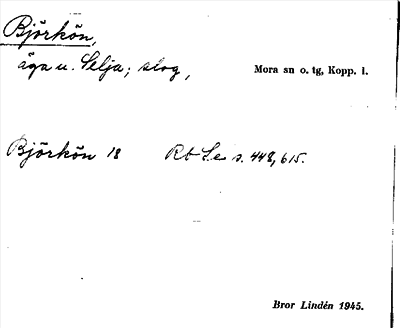 Björkön,
äga u. Selja; skog,
Mora sn o. tg, Kopp. l.
Björkön 18 Rb S.e s. 448, 615.
Bror Lindén 1945.